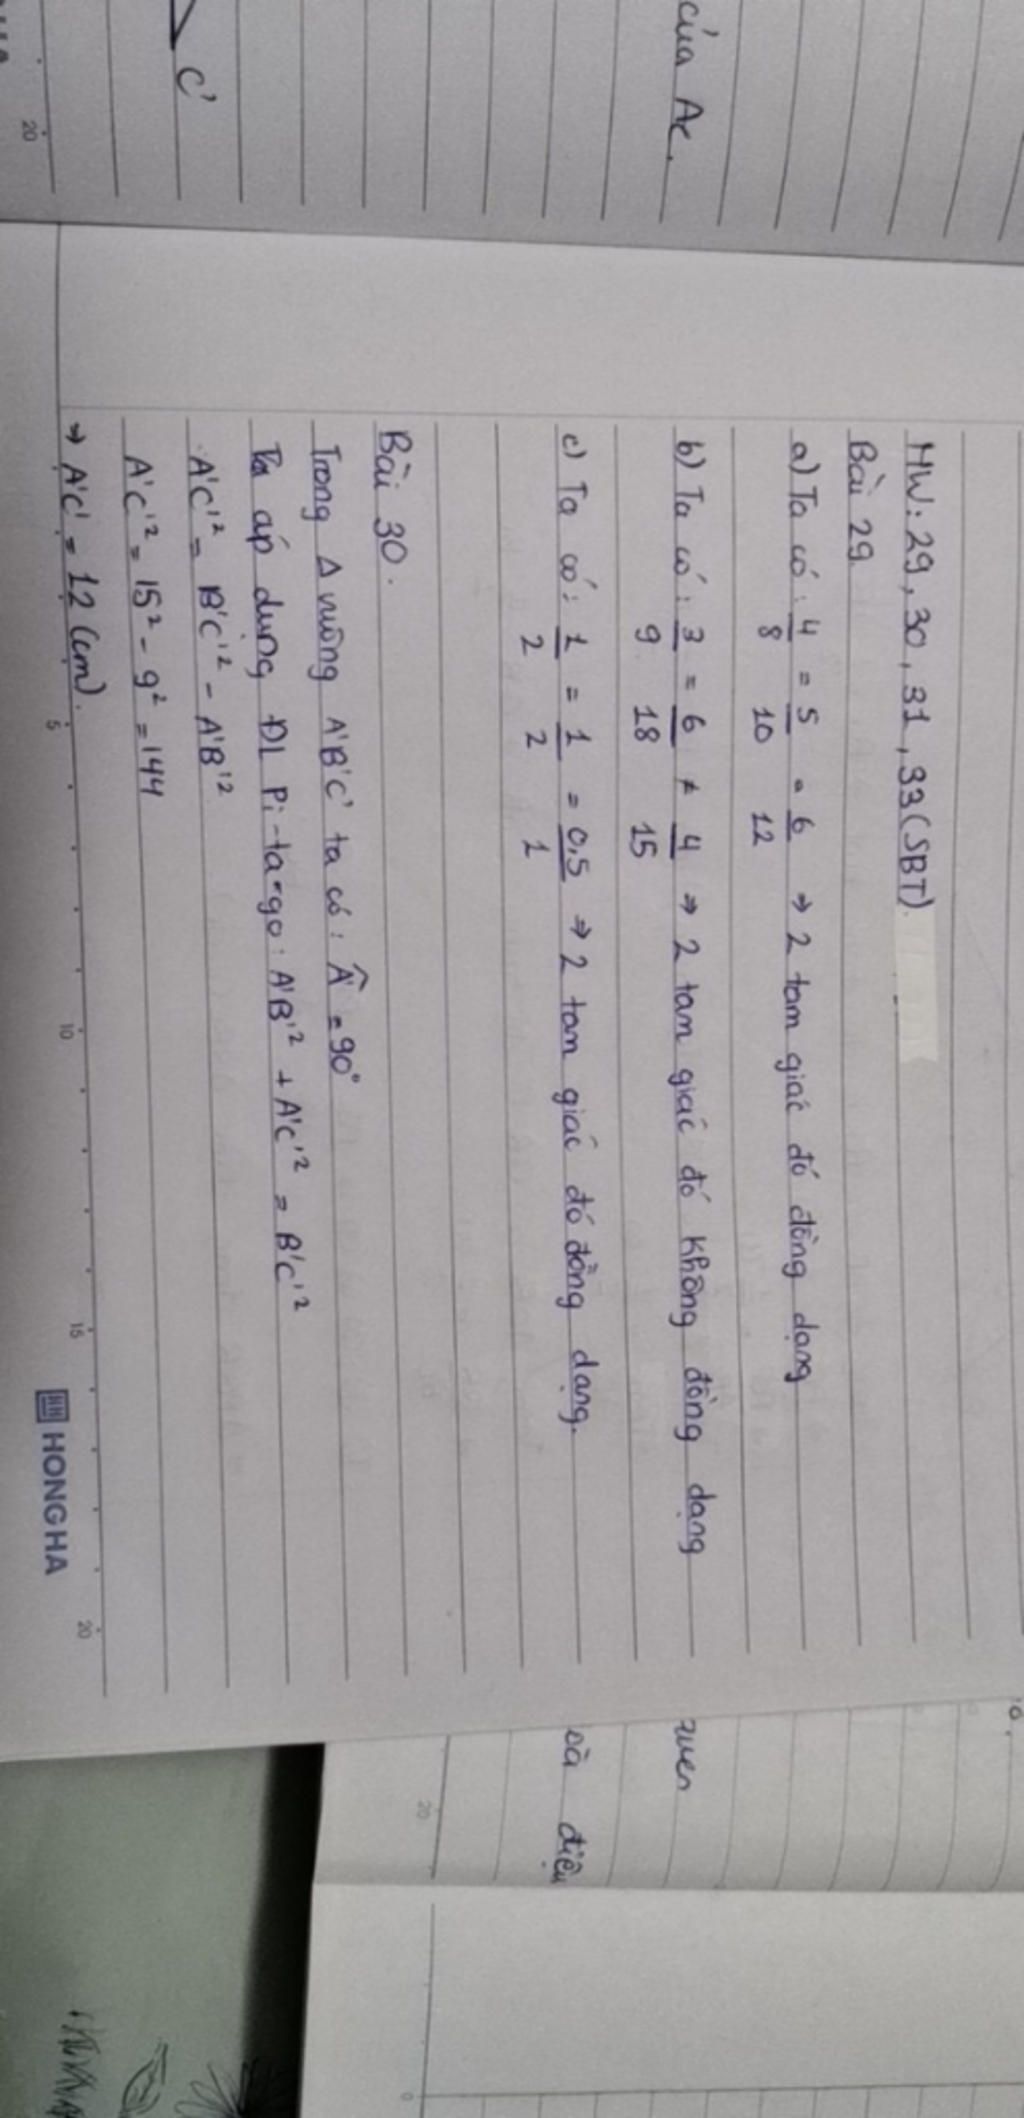 của AC.
C'
20
HW: 29, 30, 31, 33 (SBT).
Bài 29.
a) Ta có: 4/8 = 5/10 = 6/12 ⇒ 2 tam giác đó đồng dạng
b) Ta có: 3/9 = 6/18 ≠ 4/15 ⇒ 2 tam giác đó không đồng dạng
c) Ta có: 1/2 = 1/2 = 0,5/1 ⇒ 2 tam giác đó đồng dạng.
Bài 30.
Trong Δ vuông A'B'C' ta có: Â = 90°
Ta áp dụng ĐL Pi-ta-go: A'B'² + A'C'² = B'C'²
A'C'² = B'C'² - A'B'²
A'C'² = 15² - 9² = 144
⇒ A'C' = 12 (cm).
5 10 15 20
HONG HA
và điều
20
0